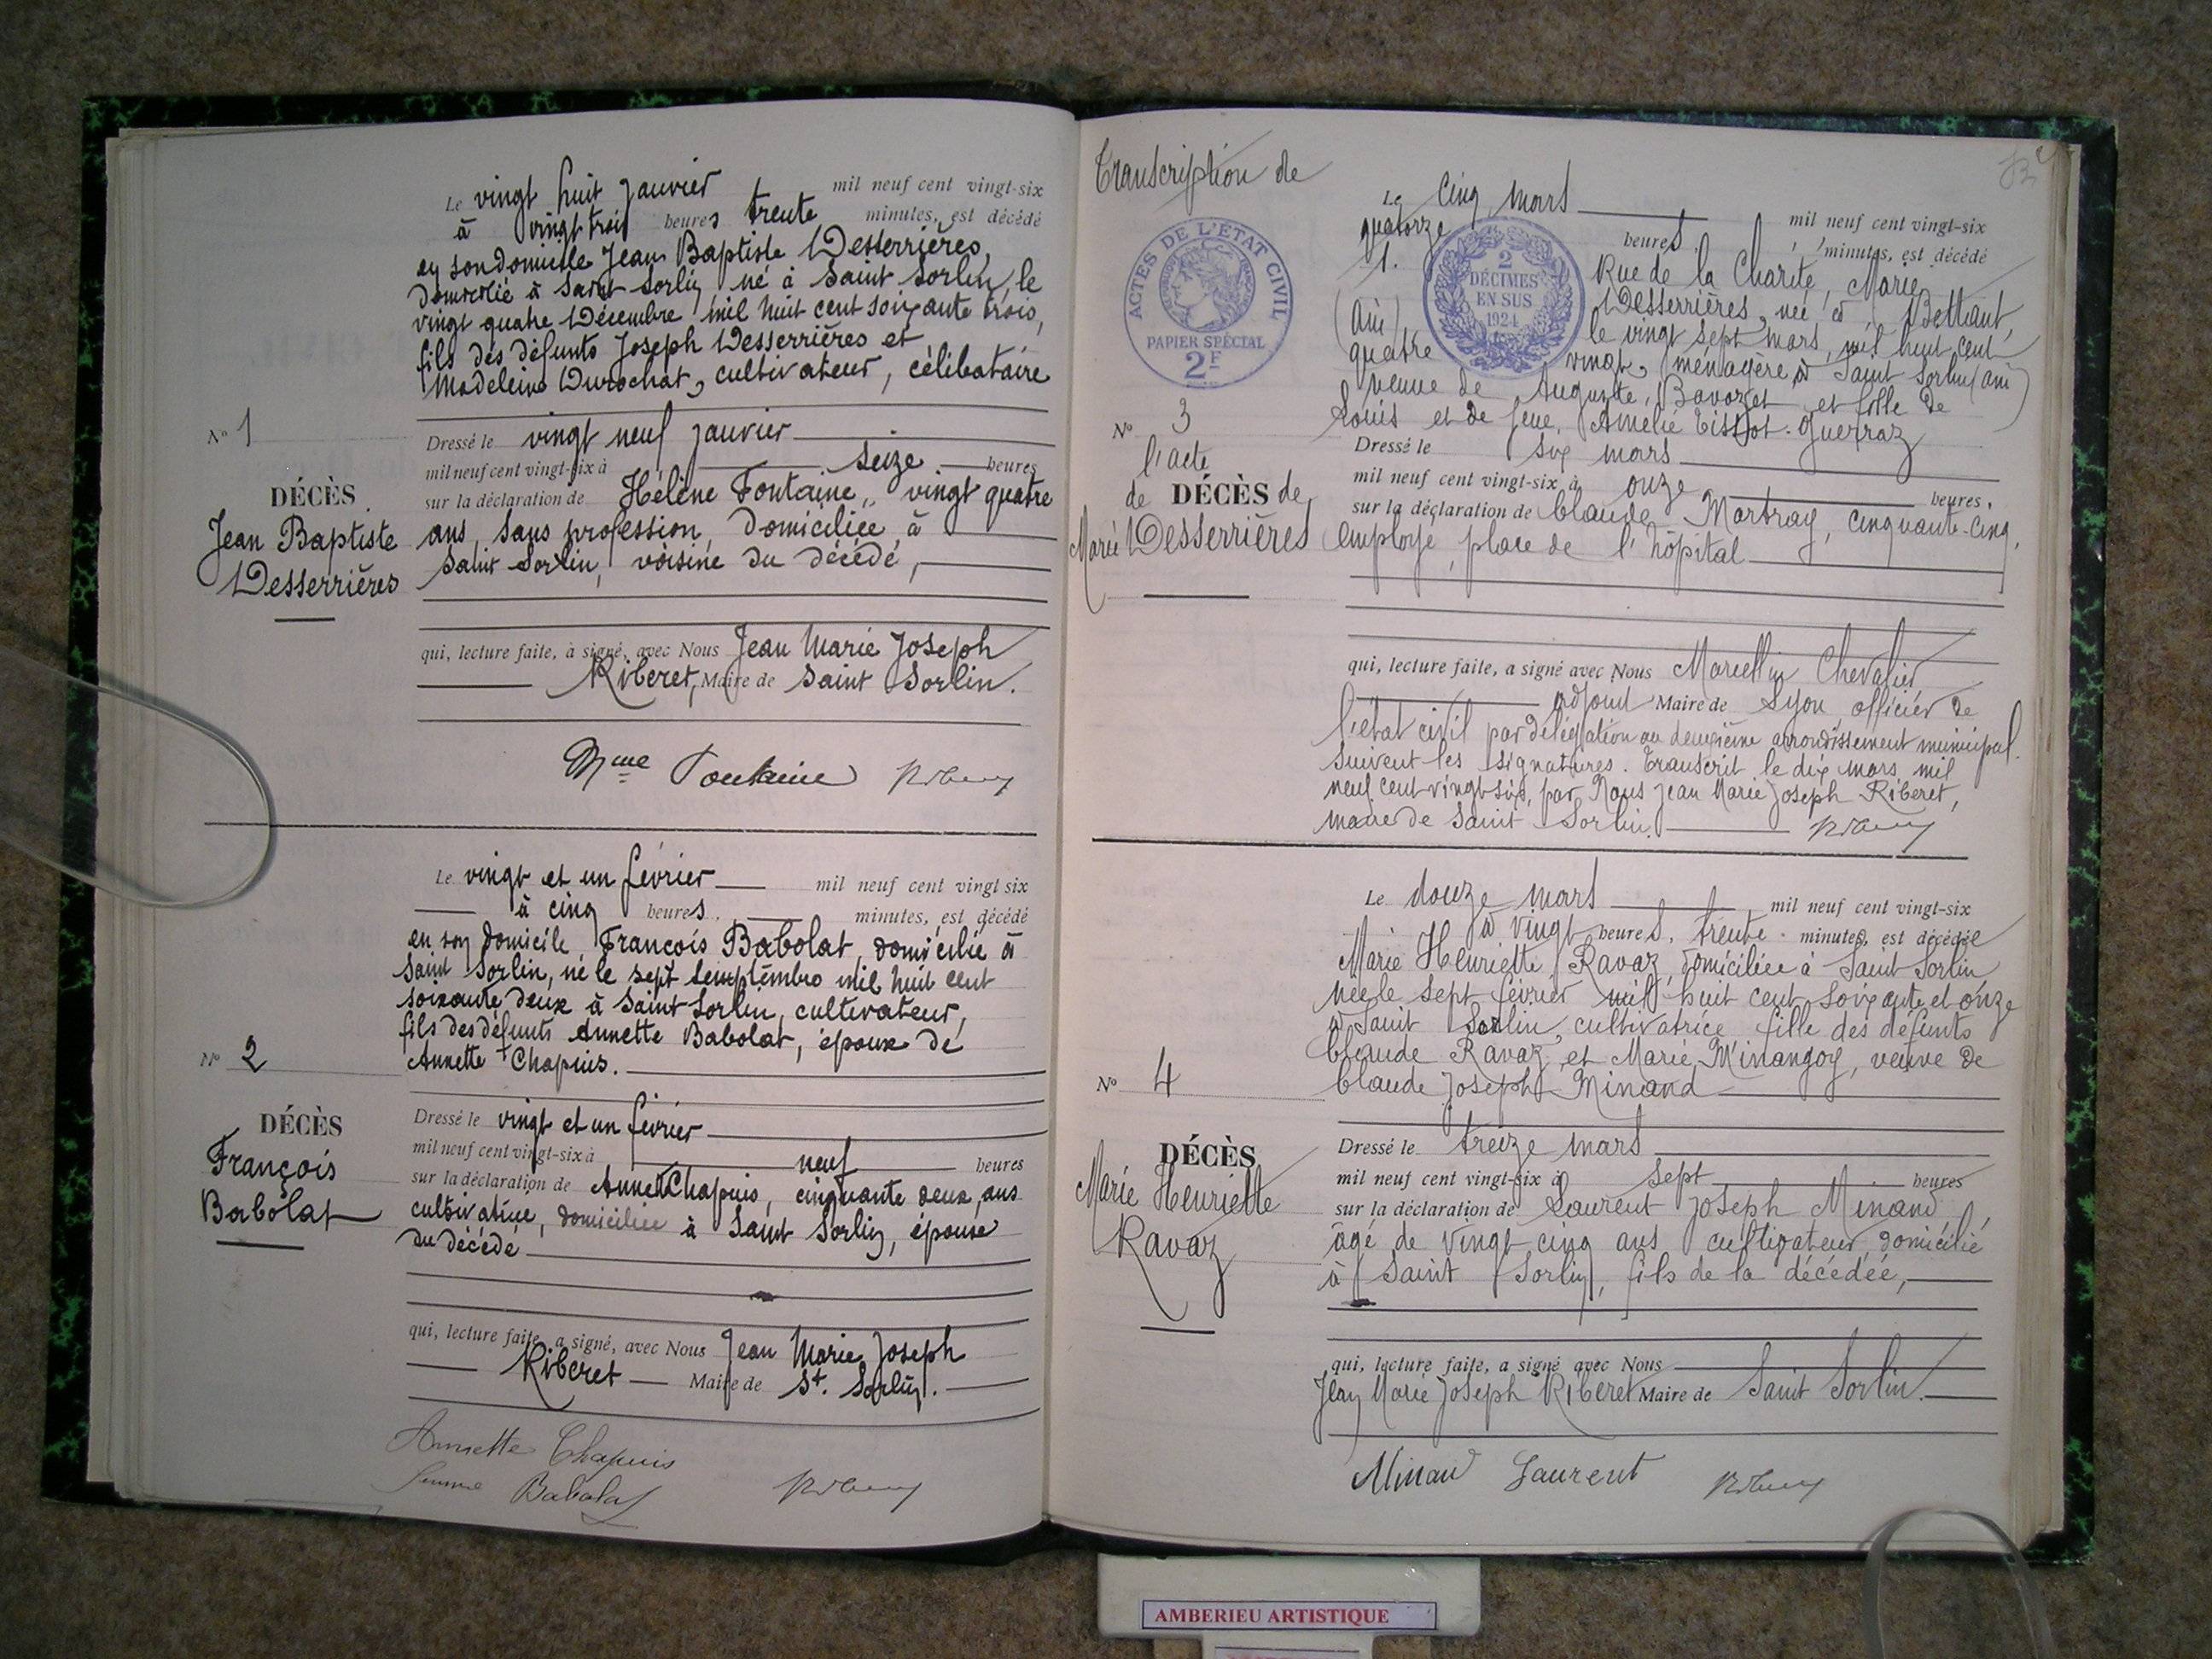 Le vingt huit janvier mil neuf cent vingt-six
à vingt trois heures trente minutes, est décédé
en son domicile Jean Baptiste Desserrières,
domicilié à Saint Sorlin né à Saint Sorlin, le
vingt quatre Décembre mil huit cent soixante trois,
fils des défunts Joseph Desserrières et
Madeleine Durochat, cultivateur, célibataire
N° 1
DÉCÈS
Jean Baptiste
Desserrières
Dressé le vingt neuf janvier
mil neuf cent vingt-six à seize heures
sur la déclaration de Hélène Fontaine, vingt quatre
ans, sans profession, domiciliée à
Saint Sorlin, voisine du décédé,
qui, lecture faite, à signé, avec Nous Jean Marie Joseph
Riberet, Maire de Saint Sorlin.
Mme Fontaine Riberet
Le vingt et un février mil neuf cent vingt six
à cinq heures, minutes, est décédé
en son domicile, François Babolat, domicilié à
Saint Sorlin, né le sept semptembre mil huit cent
soixante deux à Saint Sorlin, cultivateur,
fils des défunts Annette Babolat, époux de
Annette Chapuis.
N° 2
DÉCÈS
François
Babolat
Dressé le vingt et un février
mil neuf cent vingt-six à neuf heures
sur la déclaration de Annette Chapuis, cinquante deux ans
cultivatrice, domiciliée à Saint Sorlin, épouse
du décédé
qui, lecture faite, a signé, avec Nous Jean Marie Joseph
Riberet Maire de St. Sorlin.
Annette Chapuis
femme Babolat Riberet
Transcription de
ACTES DE L'ÉTAT CIVIL
PAPIER SPÉCIAL
2F
2
DÉCIMES
EN SUS
1924
Le cinq mars mil neuf cent vingt-six
quatorze heures minutes, est décédé
1. Rue de la Charité, Marie
Desserrières, née à Bettant,
(Ain) le vingt sept mars, mil huit cent
quatre vingt, ménagère à Saint Sorlin (Ain)
veuve de Auguste, Bavozet et fille de
Louis et de feue, Amélie Tissot-Guerraz
N° 3
l'acte
de DÉCÈS de
Marie Desserrières
Dressé le six mars
mil neuf cent vingt-six à onze heures,
sur la déclaration de Claude Martray, cinquante-cinq,
employé, place de l'hôpital
qui, lecture faite, a signé avec Nous Marcellin Chevalier
adjoint Maire de Lyon, officier de
l'état civil par délégation au deuxième arrondissement municipal.
Suivent les signatures. Transcrit le dix mars mil
neuf cent vingt six, par Nous Jean Marie Joseph Riberet,
maire de Saint Sorlin. Riberet
Le douze mars mil neuf cent vingt-six
à vingt heures, trente minutes, est décédée
Marie Henriette Ravaz, domiciliée à Saint Sorlin
née le sept février mil huit cent soixante et onze
à Saint Sorlin, cultivatrice fille des défunts
Claude Ravaz et Marie Minangoy, veuve de
Claude Joseph Minand
N° 4
DÉCÈS
Marie Henriette
Ravaz
Dressé le treize mars
mil neuf cent vingt-six à sept heures
sur la déclaration de Laurent Joseph Minand,
âgé de vingt cinq ans cultivateur domicilié
à Saint Sorlin, fils de la décédée,
qui, lecture faite, a signé avec Nous
Jean Marie Joseph Riberet Maire de Saint Sorlin.
Minand Laurent Riberet
AMBERIEU ARTISTIQUE